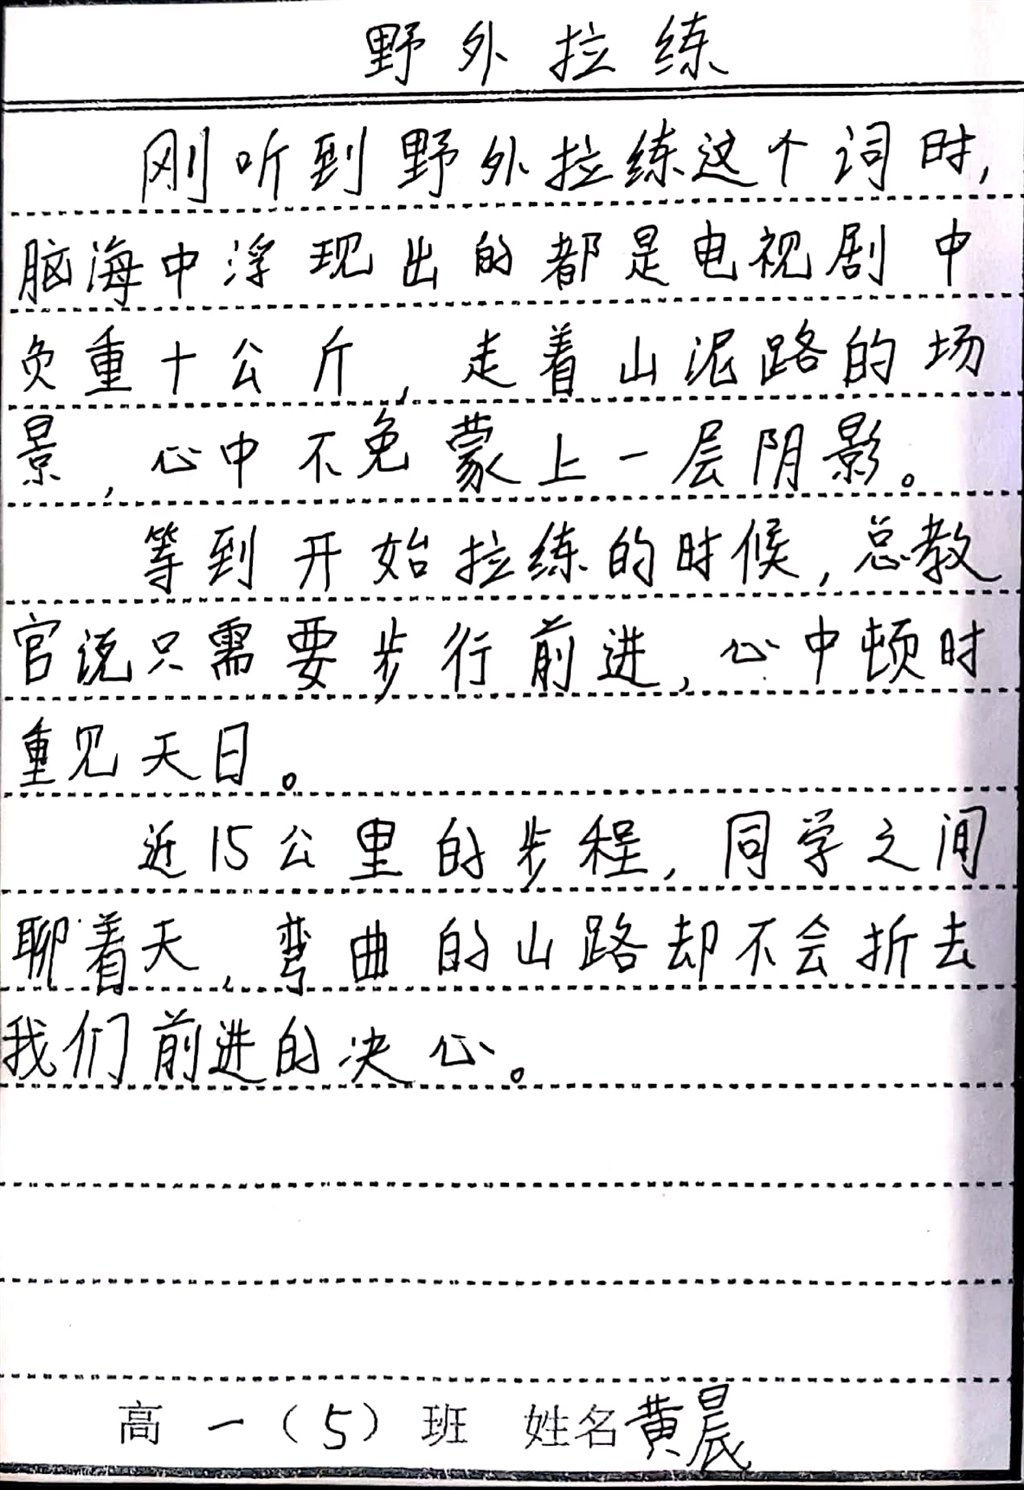 野外拉练
刚听到野外拉练这个词时,
脑海中浮现出的都是电视剧中
负重十公斤,走着山泥路的场
景,心中不免蒙上一层阴影。
等到开始拉练的时候,总教
官说只需要步行前进,心中顿时
重见天日。
近15公里的步程,同学之间
聊着天,弯曲的山路却不会折去
我们前进的决心。
高一(5)班 姓名黄晨